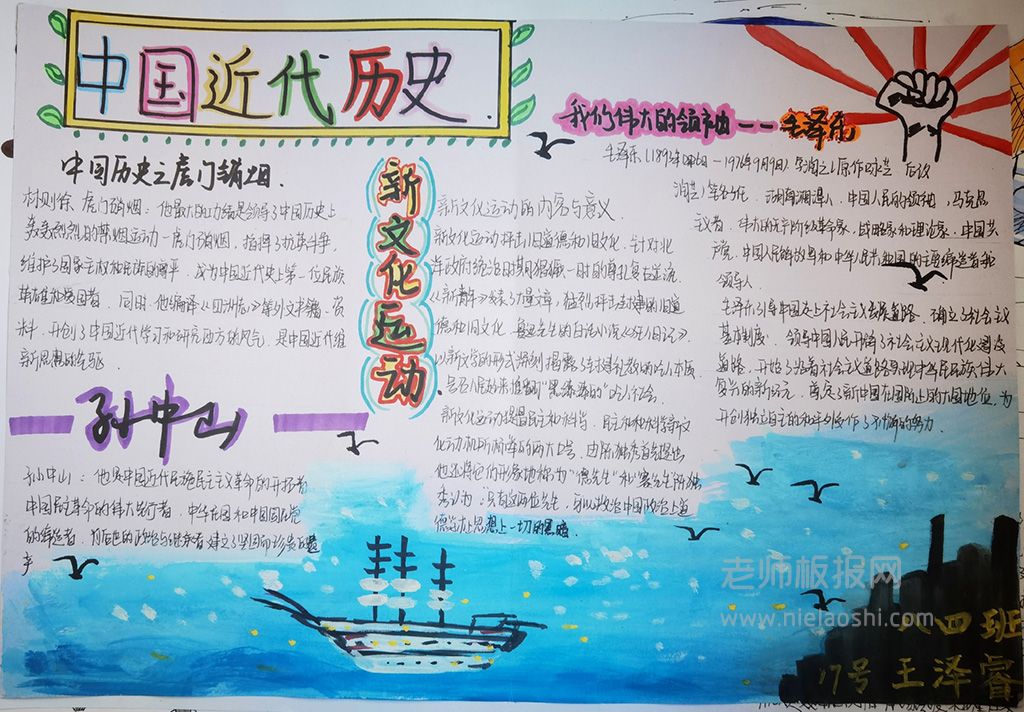 中国近代历史
中国历史之虎门销烟.
林则徐 虎门销烟：他最大的功绩是领导了中国历史上
轰轰烈烈的禁烟运动—虎门销烟，指挥了抗英斗争，
维护了国家主权和民族的尊严，成为中国近代史上第一位民族
英雄和爱国者，同时，他编译《四洲志》等外文书籍、资
料，开创了中国近代学习和研究西方的风气，是中国近代维
新思想的先驱
孙中山
孙中山：他是中国近代民族民主主义革命的开拓者
中国民主革命的伟大先行者，中华民国和中国国民党
的缔造者，为后世的政治与继承者建立了坚固而珍贵的遗
产
新文化运动
新文化运动的内容与意义
新文化运动抨击旧道德和旧文化，针对北
洋政府统治时期猖獗一时的尊孔复古逆流
《新青年》发表了大量文章，猛烈抨击封建的旧道
德和旧文化，鲁迅先生的白话小说《狂人日记》，
以新文学的形式深刻揭露了封建礼教的吃人本质
新文化运动提倡民主和科学，民主和科学是新文
化运动机所树举的两大口号，由陈独秀首先提出，
他还将它们形象地称为“德先生”和“赛先生”陈独
秀认为：只有这两位先生，可以救治中国政治上道
德学术上思想上一切的黑暗．
我们伟大的领袖——毛泽东
毛泽东(1893年12月26日—1976年9月9日)，字润之（原作咏芝 后改
润芝）笔名子任．湖南湘潭人，中国人民的领袖，马克思
主义者，伟大的无产阶级革命家，战略家和理论家，中国共
产党，中国人民解放军和中华人民共和国的主要缔造者和
领导人．
毛泽东引导中国走上社会主义发展道路，确立了社会主义
基本制度．领导中国人民开辟了社会主义现代化建设
道路，开始了沿着社会主义道路实现中华民族伟大
复兴的新纪元，奠定了新中国在国际上的大国地位，为
开创独立自主的和平外交作了不懈的努力．
老师板报网
www.nielaoshi.com
八四班
17号 王泽睿